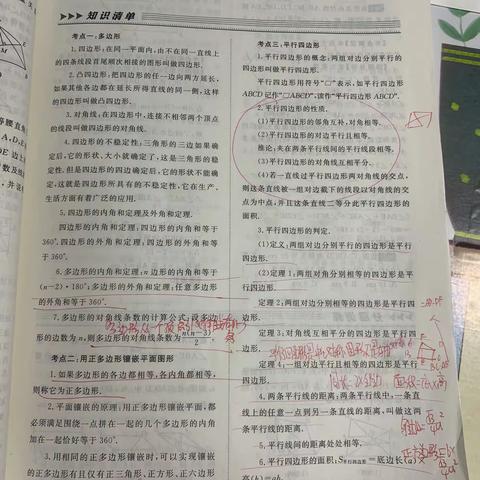 知识清单
考点一:多边形
1.四边形:在同一平面内,由不在同一直线上
的四条线段首尾顺次相接的图形叫做四边形.
2.凸四边形:把四边形的任一边向两方延长,
如果其他各边都在延长所得直线的同一侧,这样
的四边形叫做凸四边形.
3.对角线:在四边形中,连接不相邻两个顶点
的线段叫做四边形的对角线.
4.四边形的不稳定性:三角形的三边如果确
定后,它的形状、大小就确定了,这是三角形的稳定
性.但是四边形的四边确定后,它的形状不能确
定,这就是四边形所具有的不稳定性,它在生产、
生活方面有着广泛的应用.
5.四边形的内角和定理及外角和定理.
四边形的内角和定理:四边形的内角和等于
360°.四边形的外角和定理:四边形的外角和等
于360°.
6.多边形的内角和定理:n边形的内角和等于
(n-2)·180°;多边形的外角和定理:任意多边形
的外角和等于360°.
7.多边形的对角线条数的计算公式:设多边
形的边数为n,则多边形的对角线条数为n(n-3)/2.
考点二:用正多边形镶嵌平面图形
1.如果多边形的各边都相等,各内角都相等,
则称它为正多边形.
2.平面镶嵌的原理:用正多边形镶嵌平面,都
必须满足围绕一点拼在一起的几个多边形的内角
加在一起恰好等于360°.
3.用相同的正多边形镶嵌:可以实现镶嵌
的正多边形有且仅有正三角形、正方形、正六边形
考点三:平行四边形
1.平行四边形的概念:两组对边分别平行的
四边形叫做平行四边形.
平行四边形用符号“▱”表示,如平行四边形
ABCD记作“▱ABCD”,读作“平行四边形ABCD”.
2.平行四边形的性质.
(1)平行四边形的邻角互补,对角相等.
(2)平行四边形的对边平行且相等.
推论:夹在两条平行线间的平行线段相等.
(3)平行四边形的对角线互相平分.
(4)若一直线过平行四边形两对角线的交点,
则这条直线被一组对边截下的线段以对角线的交
点为中点,并且这条直线二等分此平行四边形的
面积.
3.平行四边形的判定.
(1)定义:两组对边分别平行的四边形是平行
四边形.
(2)定理1:两组对角分别相等的四边形是平
行四边形.
定理2:两组对边分别相等的四边形是平行四
边形.
定理3:对角线互相平分的四边形是平行四
边形.
定理4:一组对边平行且相等的四边形是平
行四边形.
4.两条平行线的距离:两条平行线中,一条直
线上的任意一点到另一条直线的距离,叫做这两
条平行线的距离.
5.平行线间的距离处处相等.
6.平行四边形的面积:S平行四边形=底边长(a)×
高(h)=ah.